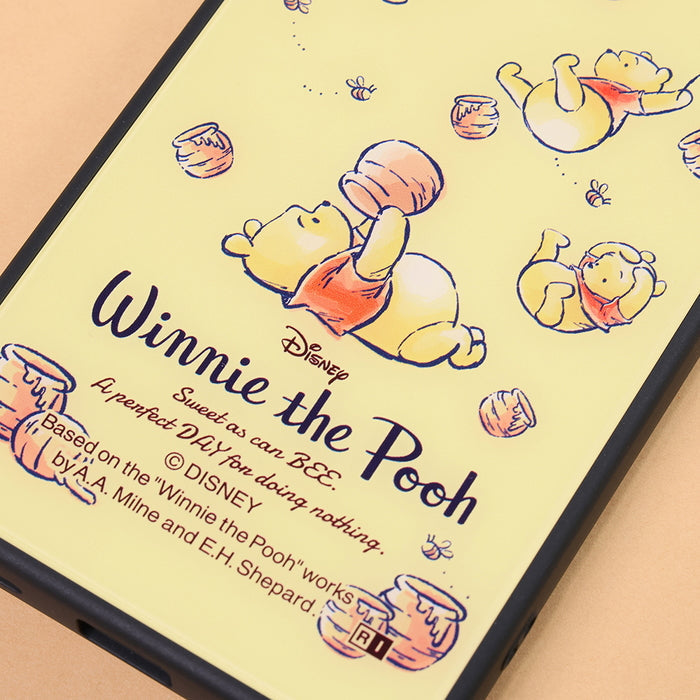 Disney
Winnie the Pooh
Sweet as can BEE.
A perfect DAY for doing nothing.
© DISNEY
Based on the "Winnie the Pooh" works
by A.A. Milne and E.H. Shepard.
RI